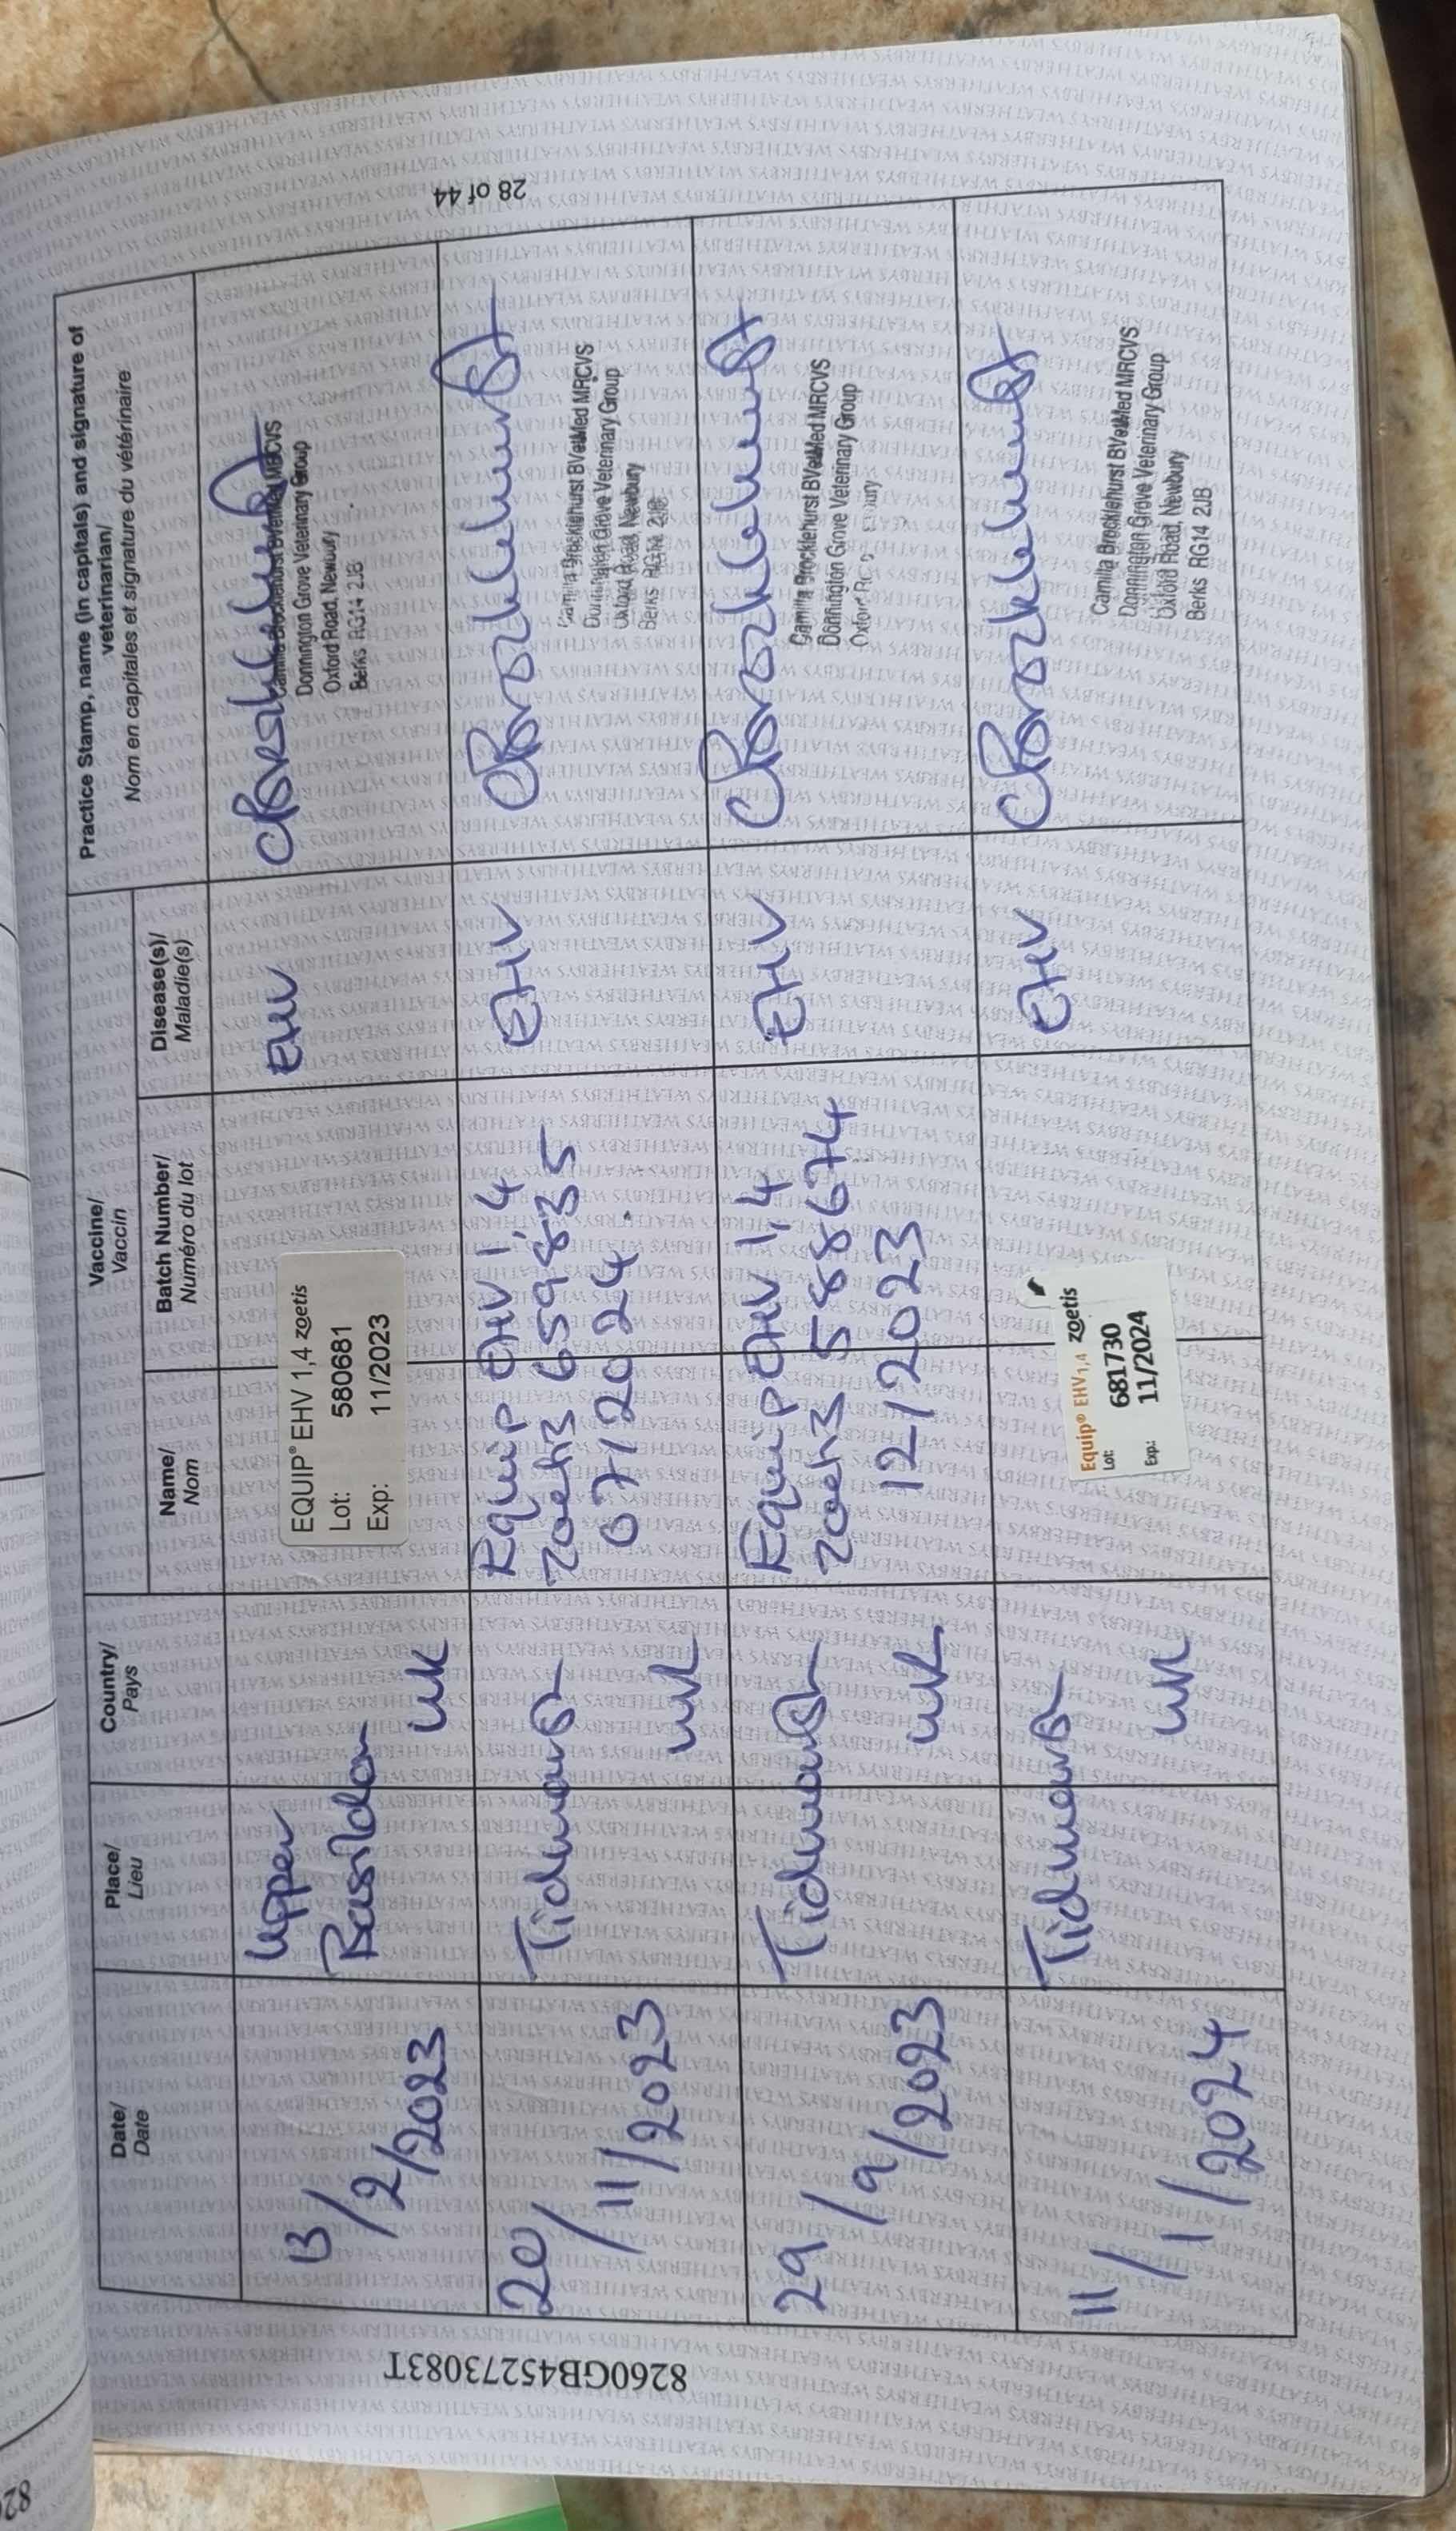 28 of 44
Date/
Date
Place/
Lieu
Country/
Pays
Vaccine/
Vaccin
Name/
Nom
Batch Number/
Numéro du lot
Disease(s)/
Maladie(s)
Practice Stamp, name (in capitals) and signature of
veterinarian/
Nom en capitales et signature du vétérinaire
13/2/2023
Upper
Basildon
UK
EQUIP® EHV 1,4 zoetis
Lot: 580681
Exp: 11/2023
EHV
CBrocklehurst
Camilla Brocklehurst BVetMed MRCVS
Donnington Grove Veterinary Group
Oxford Road, Newbury
Berks RG14 2JB
20/11/2023
Tidmarsh
UK
Equip EHV 1,4
Zoetis 659835
07/2024
EHV
CBrocklehurst
Camilla Brocklehurst BVetMed MRCVS
Donnington Grove Veterinary Group
Oxford Road, Newbury
Berks RG14 2JB
29/9/2023
Tidmarsh
UK
Equip EHV 1,4
Zoetis 588674
12/2023
EHV
CBrocklehurst
Camilla Brocklehurst BVetMed MRCVS
Donnington Grove Veterinary Group
Oxford
11/1/2024
Tidmarsh
UK
Equip® EHV 1,4 zoetis
Lot: 681730
Exp.: 11/2024
EHV
CBrocklehurst
Camilla Brocklehurst BVetMed MRCVS
Donnington Grove Veterinary Group
Oxford Road, Newbury
Berks RG14 2JB
8260GB45273083T
WEATHERBYS